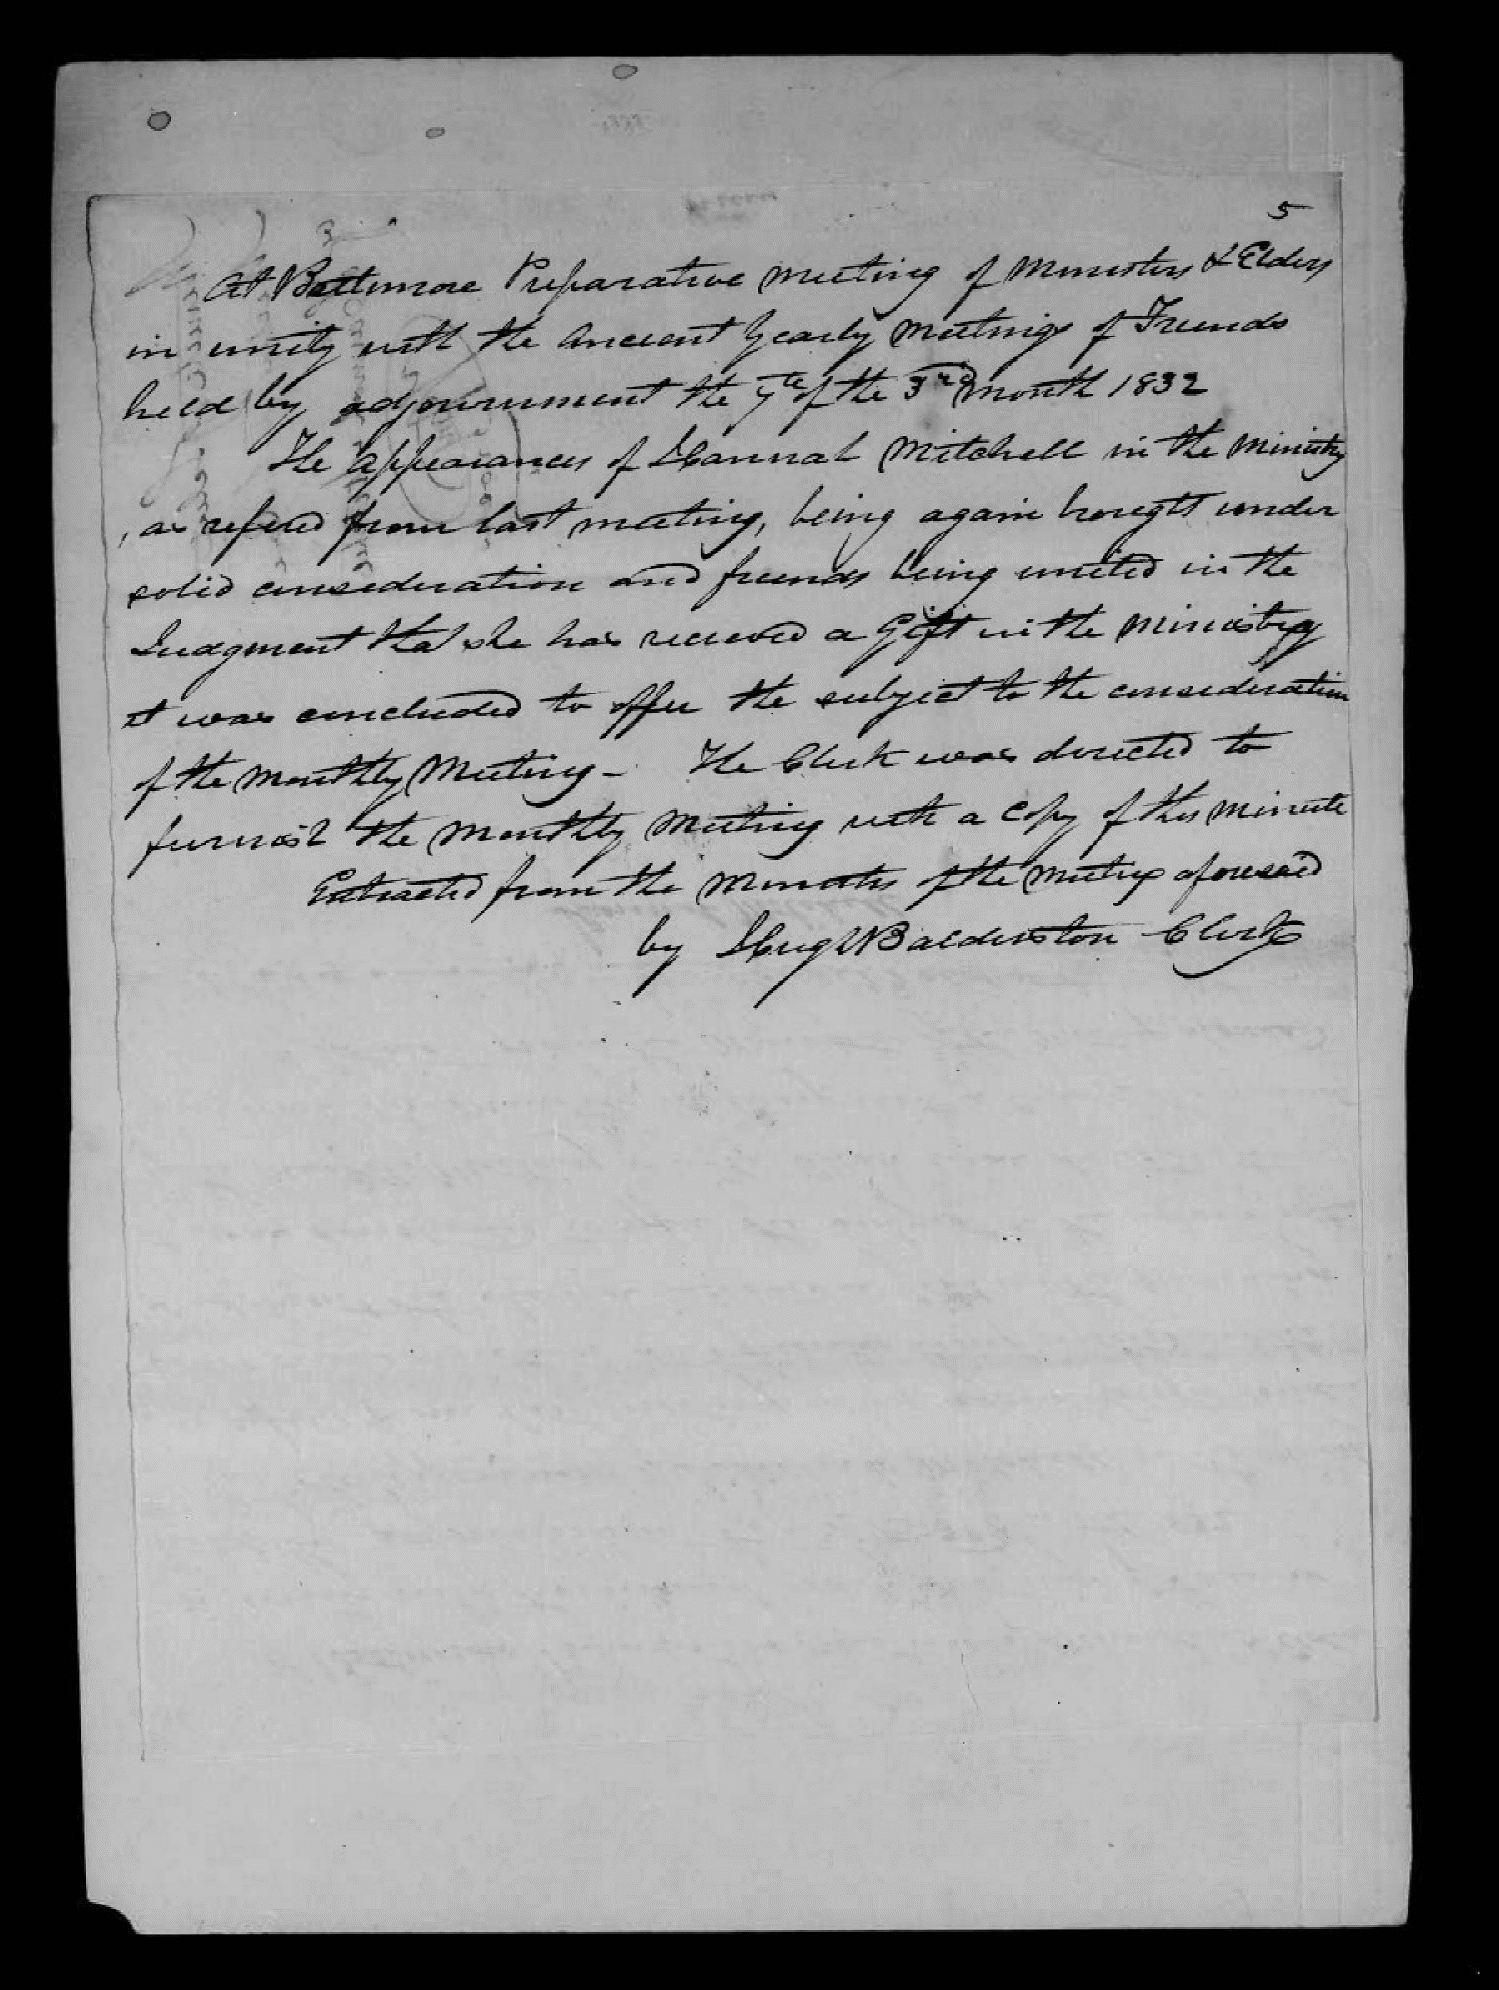 5
At Baltimore Preparative Meeting of Ministers & Elders
in unity with the Ancient Yearly Meeting of Friends
held by adjournment the 7th of the 3rd Month 1832
The appearances of Hannah Mitchell in the Ministry
, as refered from last meeting, being again brought under
solid consideration and friends being united in the
Judgment that she has received a Gift in the Ministry
it was concluded to offer the subject to the consideration
of the Monthly Meeting - The Clerk was directed to
furnish the Monthly Meeting with a Copy of this Minute
Extracted from the Minutes of the Meeting aforesaid
by Hugh Balderston Clerk